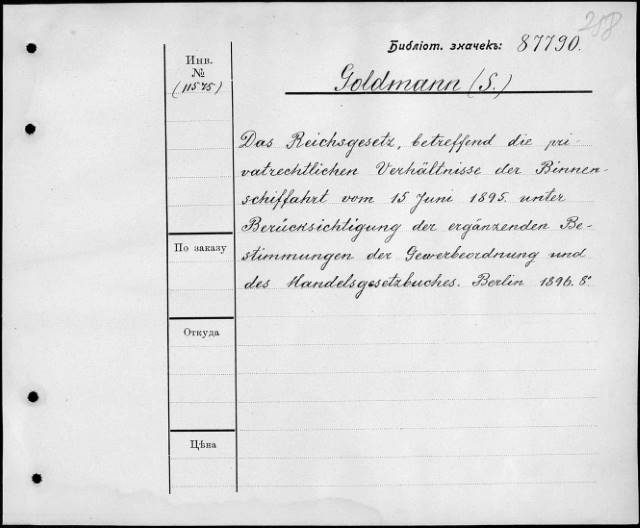 258
Библіот. значекъ: 87790.
Инв.
№
(11575)
Goldmann (S.)
Das Reichsgesetz, betreffend die pri-
vatrechtlichen Verhältnisse der Binnen-
schiffahrt vom 15 Juni 1895. unter
Berücksichtigung der ergänzenden Be-
stimmungen der Gewerbeordnung und
des Handelsgesetzbuches. Berlin 1896. 8º.
По заказу
Откуда
Цѣна